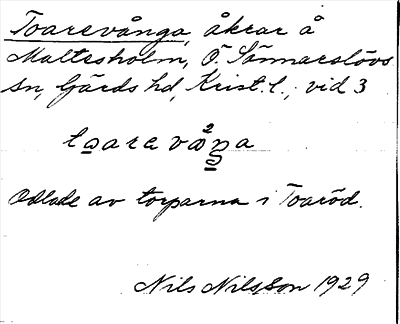 Toarevånga, åkrar å
Maltesholm, Ö. Sönnarslövs
sn, Gärds hd, Krist. l., vid 3
Odlade av torparna i Toaröd.
Nils Nilsson 1929